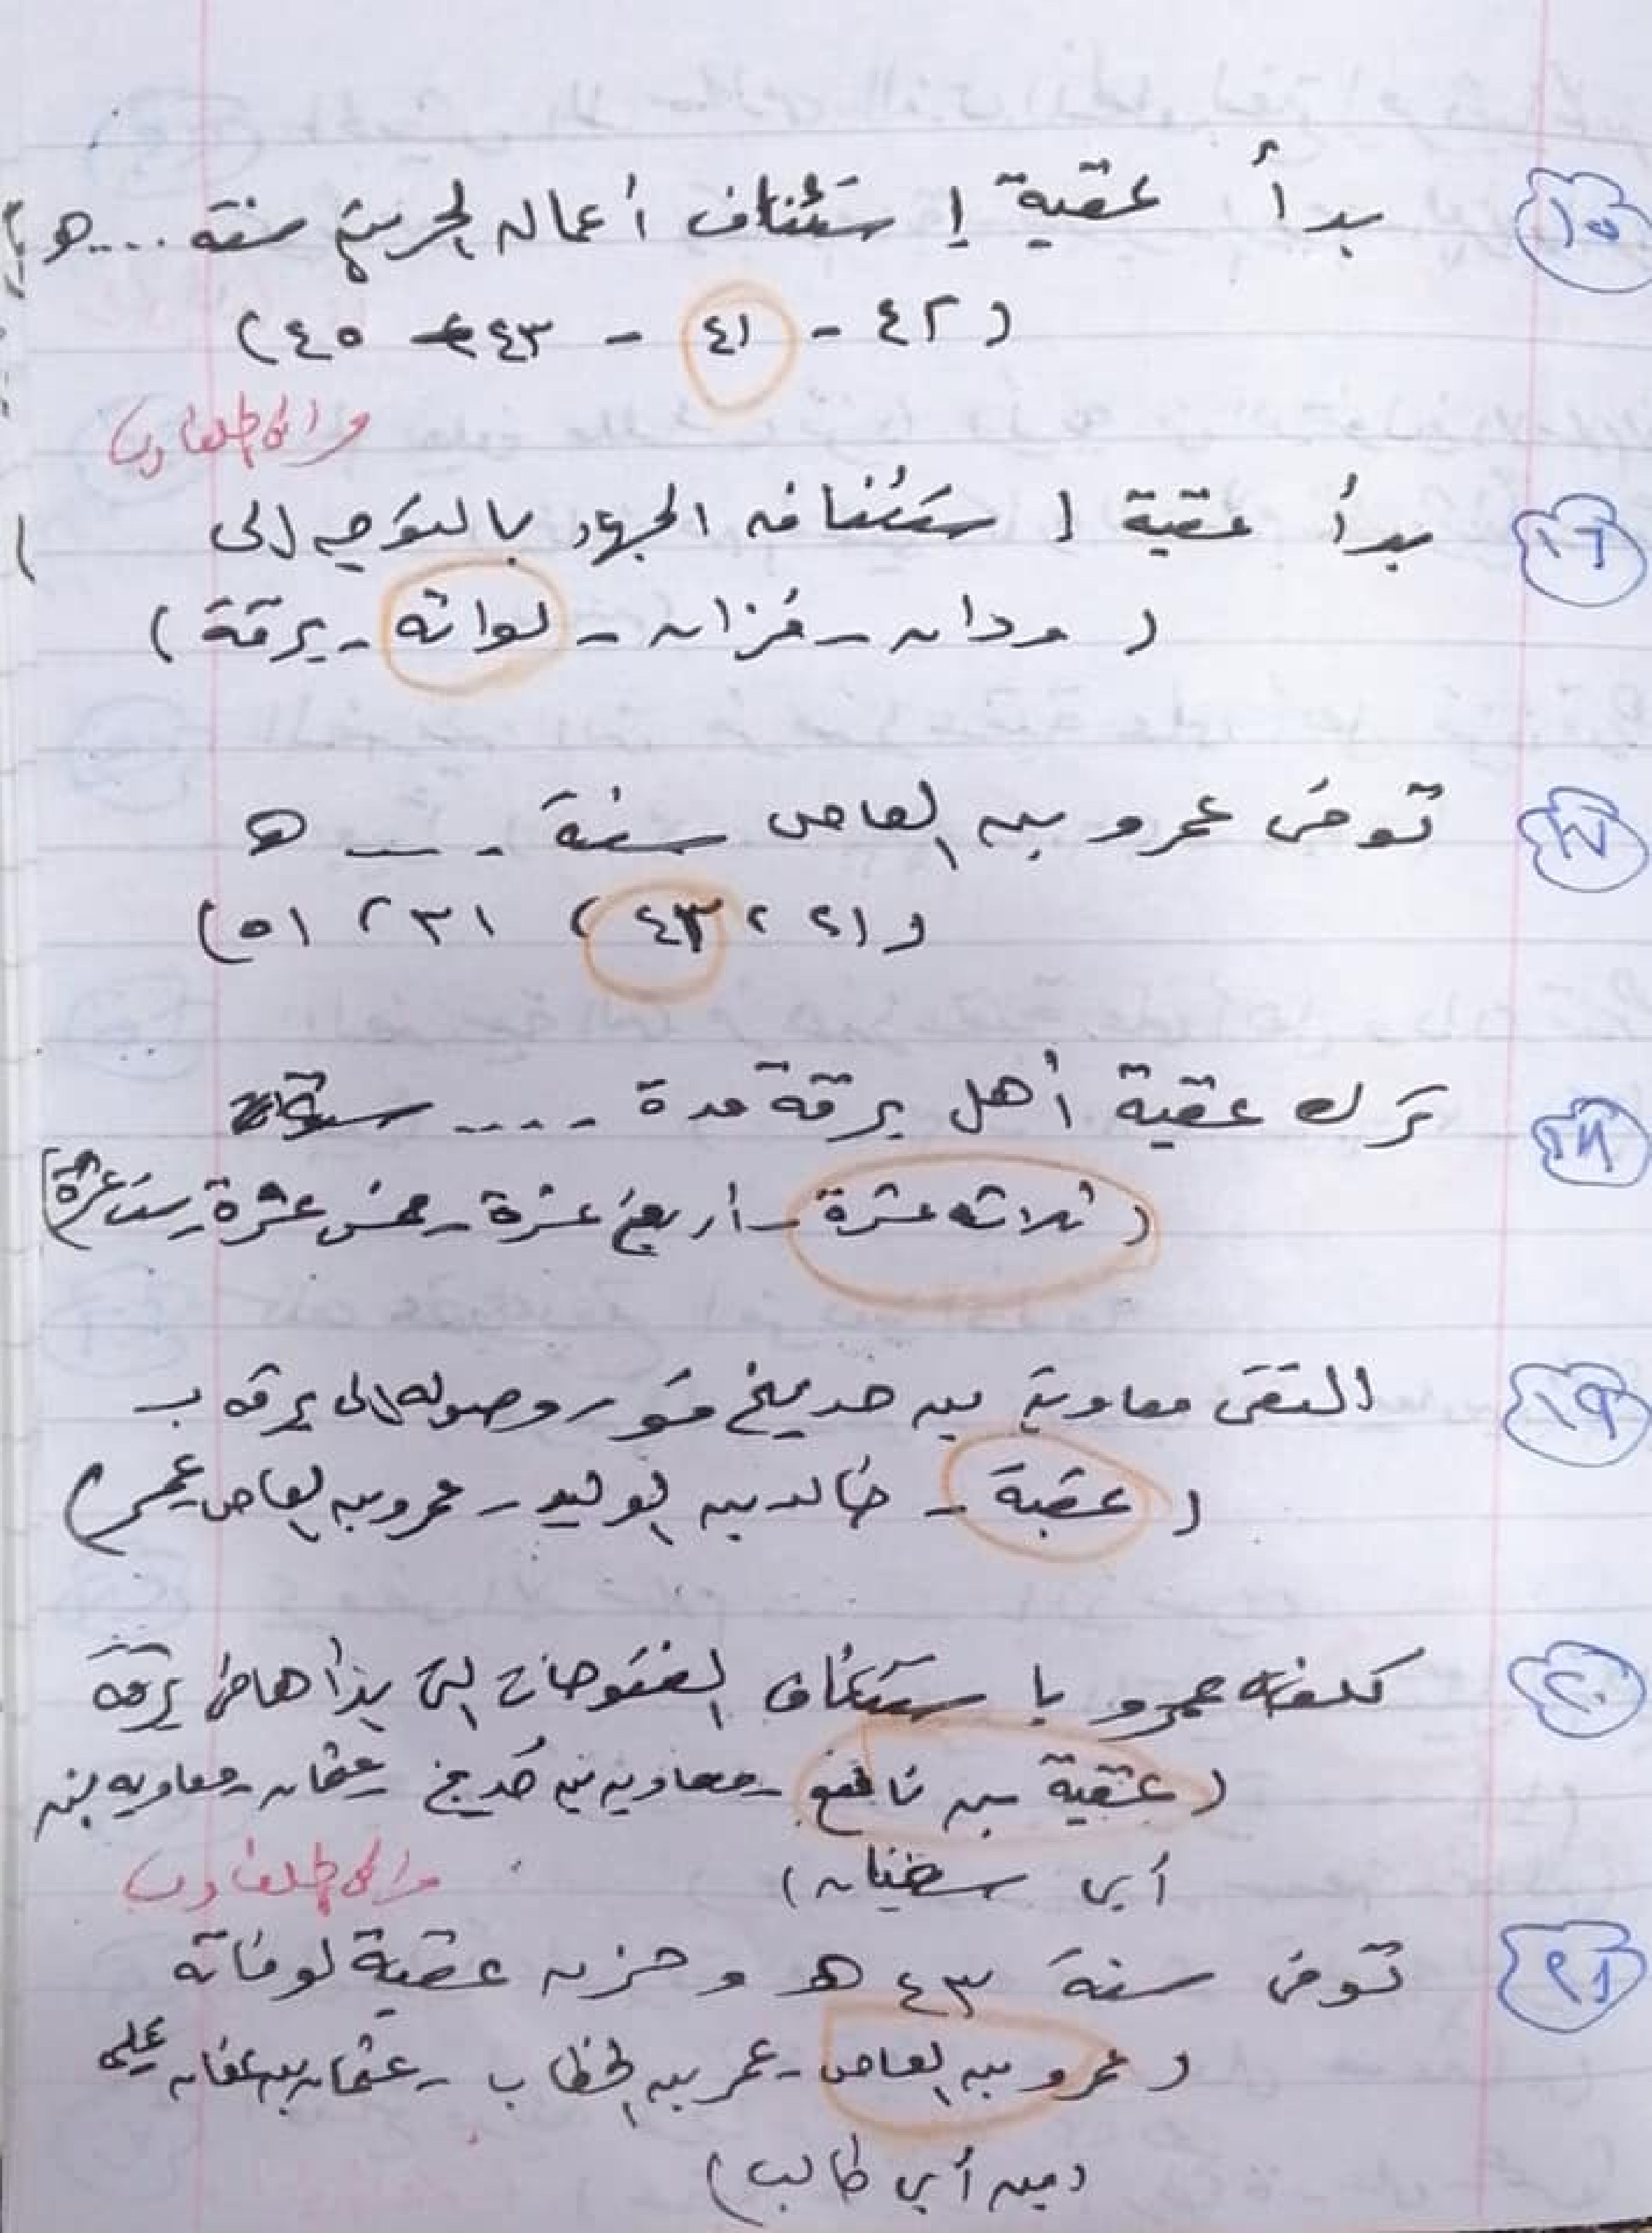 ١٥ بدأ عقبة إستئناف أعماله الحربية سنة .... هـ
(٤٢ - ٤١ - ٤٣ - ٤٥)
١٦ بدأ عقبة إستئنافه الجهاد بالتوجه إلى
(ودان - فزان - لواته - برقة)
١٧ توفى عمرو بن العاص سنة ـ ـــ هـ
(٢١، ٤٣، ٣١، ٥١)
١٨ ترك عقبة أهل برقة مدة ....
(ثلاثه عشرة - أربع عشرة - خمس عشرة - ست عشرة)
١٩ التقى معاوية بن حديج فور وصوله إلى برقه بـ
(عقبة - خالد بن الوليد - عمرو بن العاص - عمر)
٢٠ كلفه عمرو باستئناف الفتوحات التى بدأها فى برقة
(عقبة بن نافع - معاويه بن حُديج - عثمان - معاويه بن
أبى سفيان)
٢١ توفى سنة ٤٣ هـ وحزن عقبة لوفاته
(عمرو بن العاص - عمر بن الخطاب - عثمان بن عفان - على
بن أبي طالب)